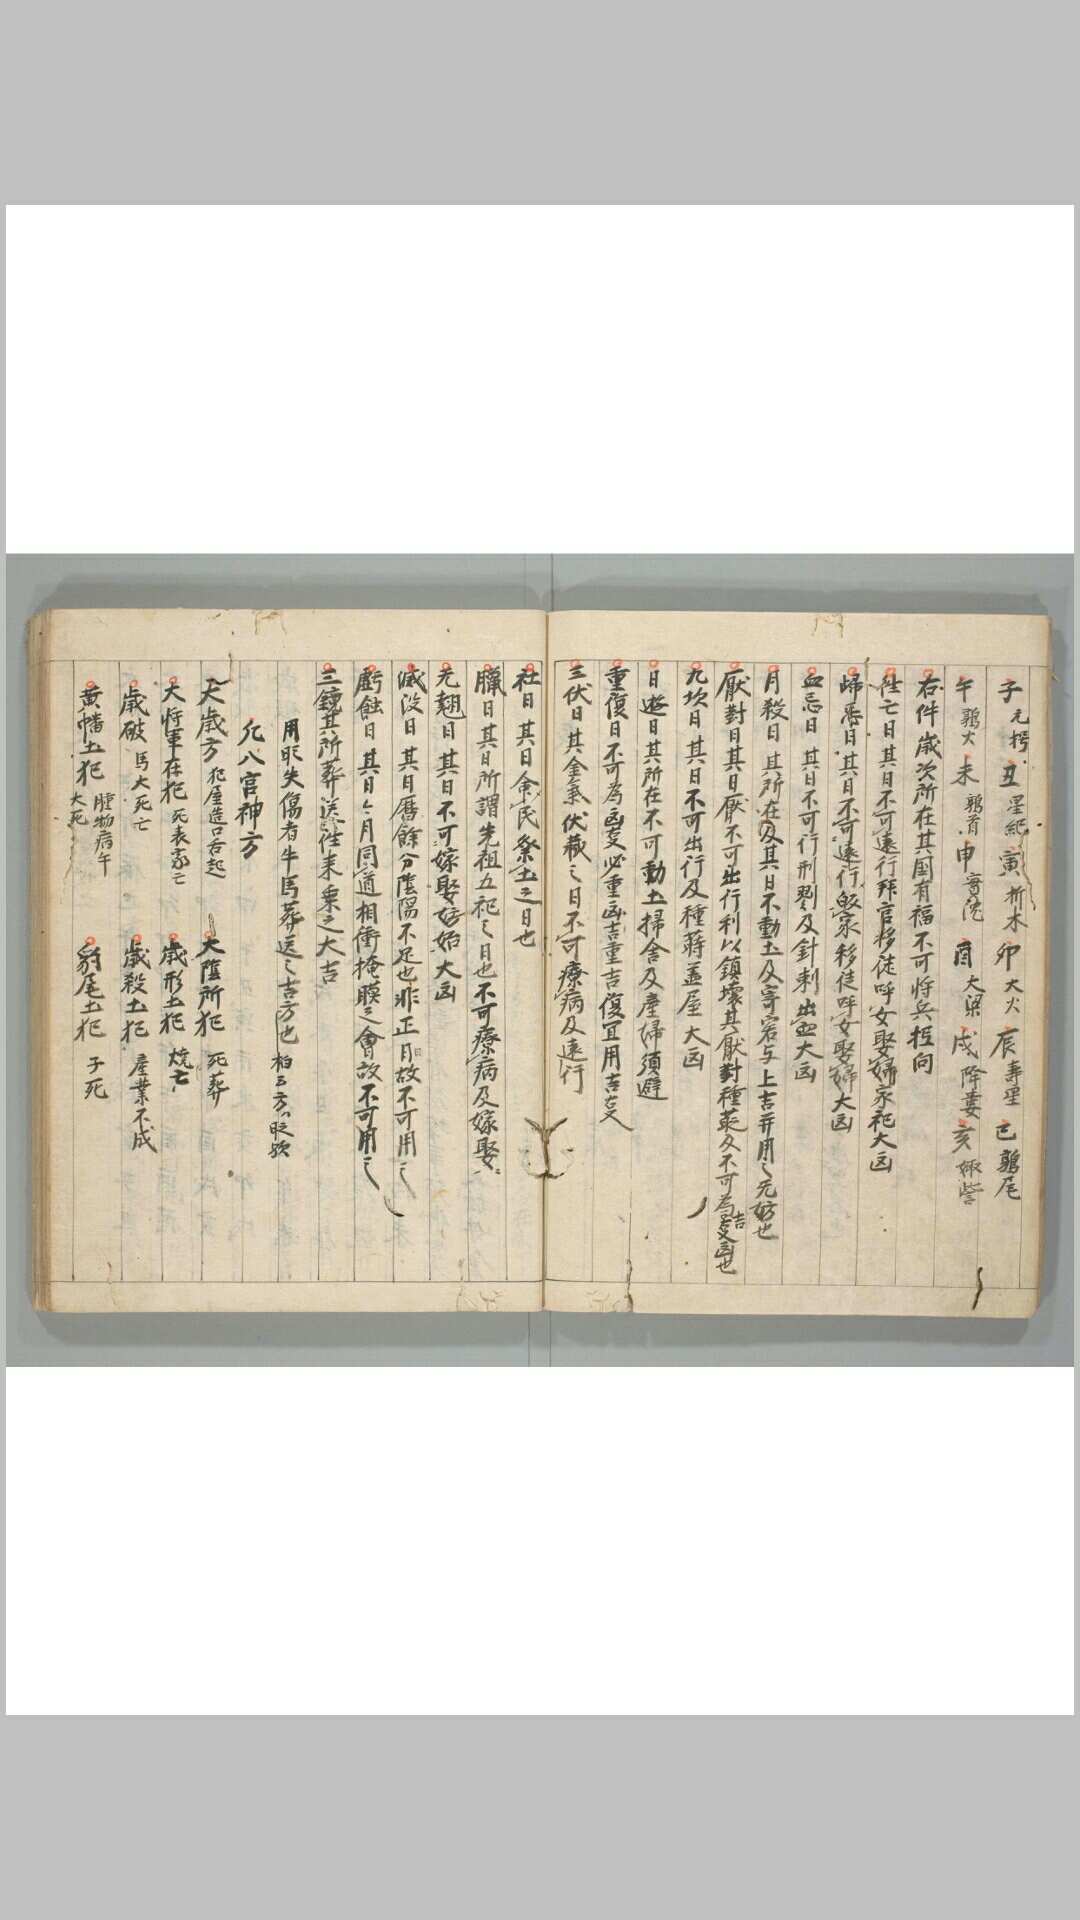 子 元枵 丑 星紀 寅 析木 卯 大火 辰 壽星 巳 鶉尾
午 鶉火 未 鶉首 申 實沈 酉 大梁 戌 降婁 亥 娵訾
右件歳次所在其国有福不可将兵抵向
往亡日其日不可遠行拜官移徒呼女娶婦家祀大凶
帰忌日其日不可遠行皈家移徒呼女娶婦大凶
血忌日其日不可行刑戮及針刺出血大凶
月殺日其所在及其日不動土及寄宕与上吉并用之无妨也
厭對日其日厭不可出行利以鎮壊其厭對種菜及不可為吉凶也
九坎日其日不可出行及種蒔蓋屋大凶
日遊日其所在不可動土掃舎及産婦須避
重復日不可為凶事必重凶吉重吉復宜用吉
三伏日其金氣伏蔵之日不可療病及遠行
社日其日令民祭土之日也
臘日其日所謂先祖五祀之日也不可療病及嫁娶
无翹日其日不可嫁娶妨姑大凶
滅没日其日暦餘分陰陽不足也非正日故不可用之
虧蝕日其日々月同道相衝掩映之會故不可用之
三鏡其所葬送往来乗之大吉
用眼失傷者牛馬葬送之吉方也
凡八官神方
大歳方 犯屋造口舌起 大陰所犯 死葬
大将軍在犯 死喪家亡 歳形土犯 焼亡
歳破 馬犬死亡 歳殺土犯 産業不成
黄幡土犯 腫物病牛犬死 豹尾土犯 子死